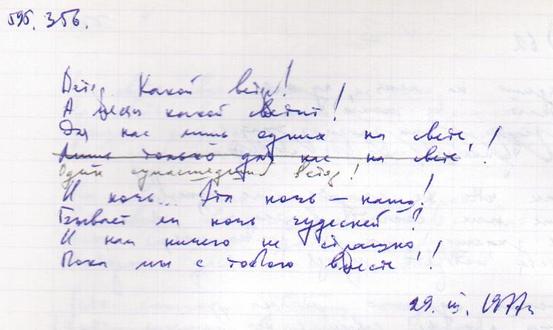 595. 356.
Дети, Какой ветер!
А месяц какой светит!
Для нас лишь одних на свете!
Лишь только для нас на свете!
Один сумасшедший ветер!
И ночь... Эта ночь – наша!
Бывает ли ночь чудесней?!
И нам ничего не страшно,
Пока мы с тобою вместе!
29. III. 1977г.